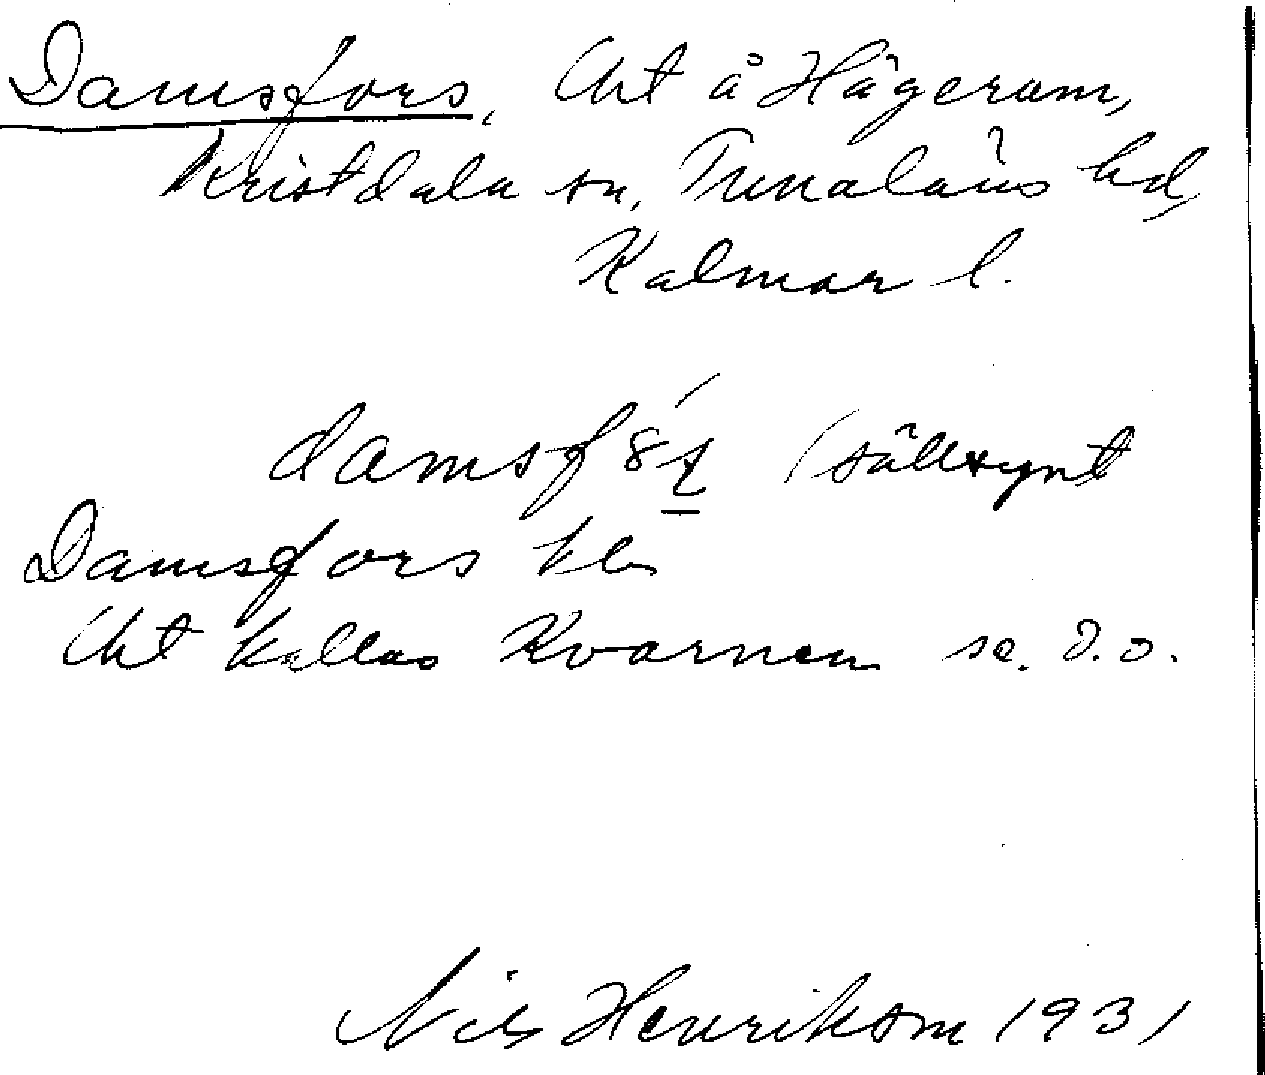 Damsfors, Cht å Hägeram,
Kristdala sn, Tunaläns hd,
Kalmar l.
(sällsynt
Damsfors
Cht kallas Kvarnen se. d.o.
Nils Henrikson 1931